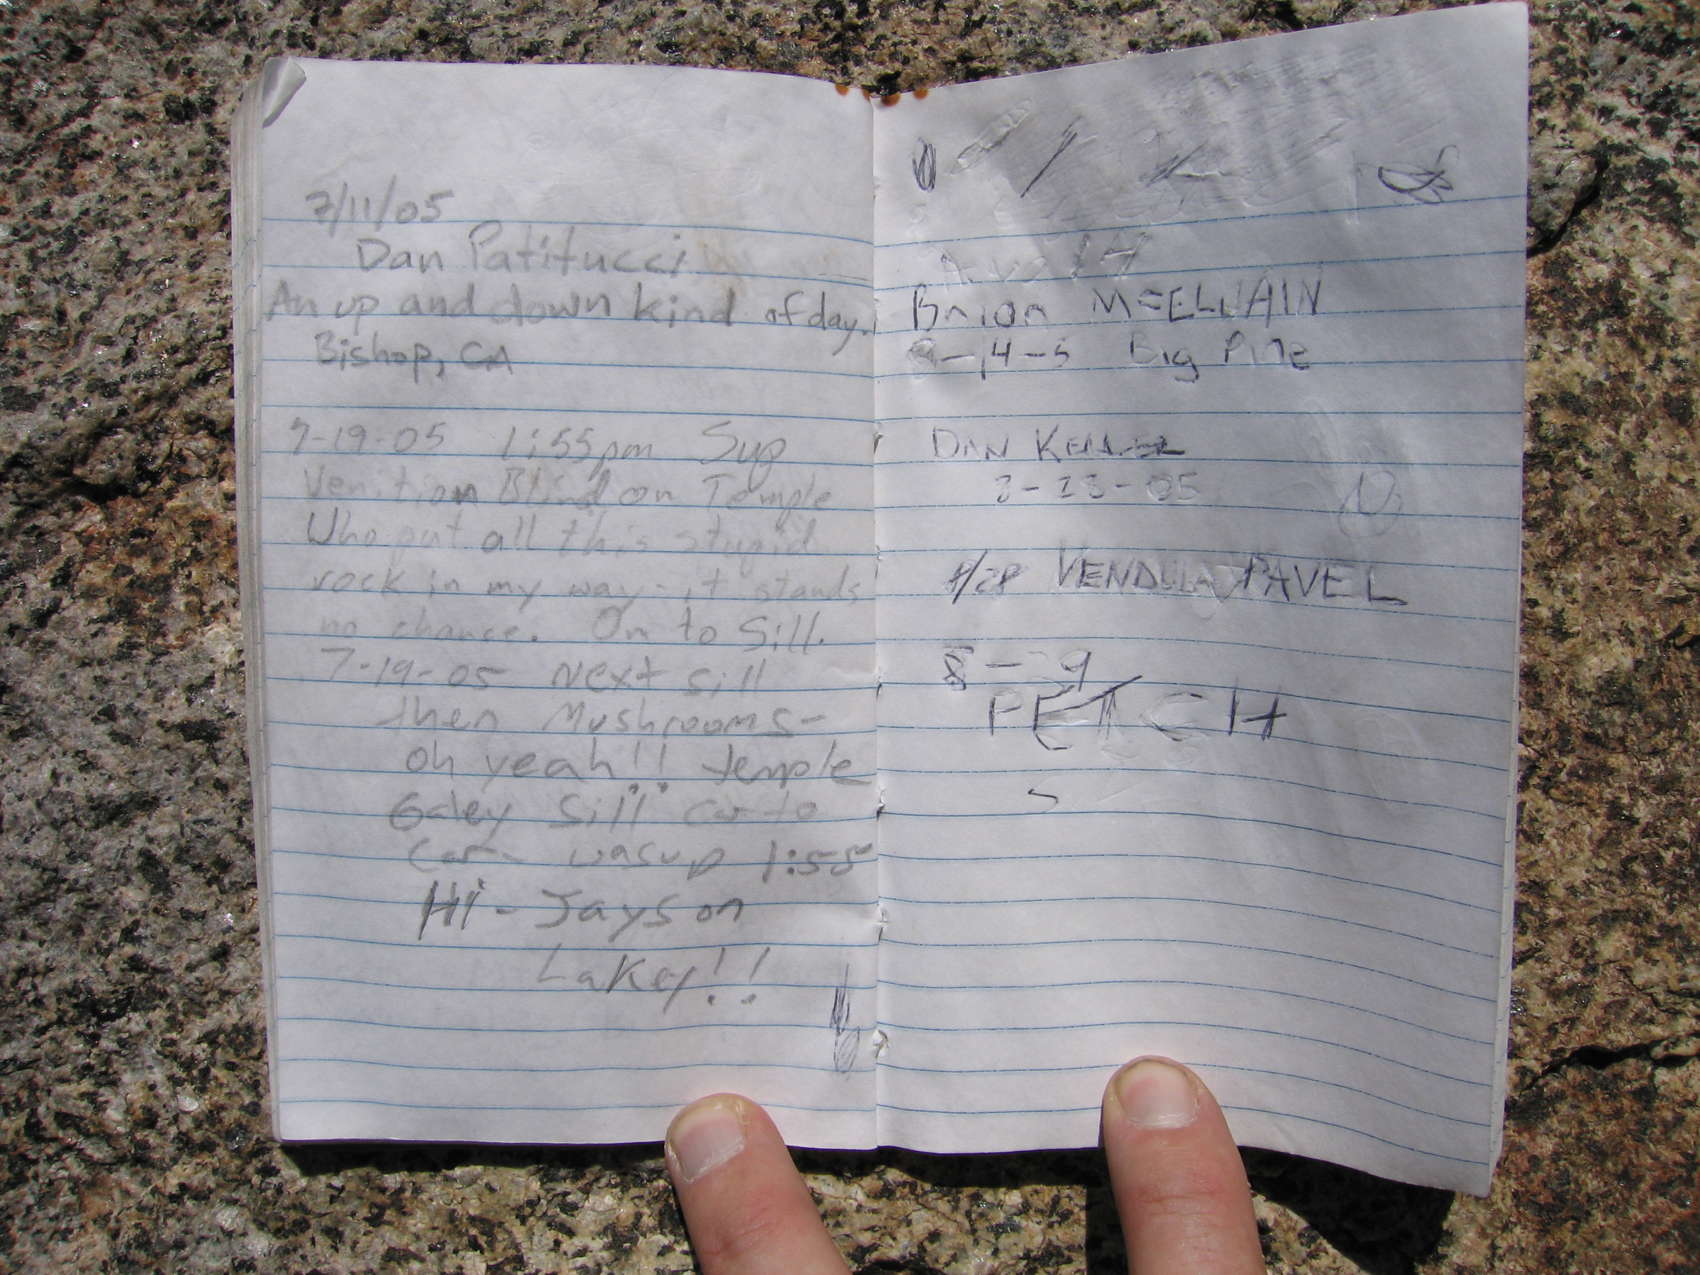 7/11/05
Dan Patitucci
An up and down kind of day.
Bishop, CA
7-19-05 1:55pm Sup
Venition Blind on Temple
Who put all this stupid
rock in my way - it stands
no chance. On to Sill.
7-19-05 Next sill
then Mushrooms-
oh yeah!! temple
Galey Sill car to
car- wasup 1:55
Hi - Jayson
Lakey!!
Brian McELWAIN
8-14-5 Big Pine
DAN
-05
8/28 VENDULA PAVEL
8-29